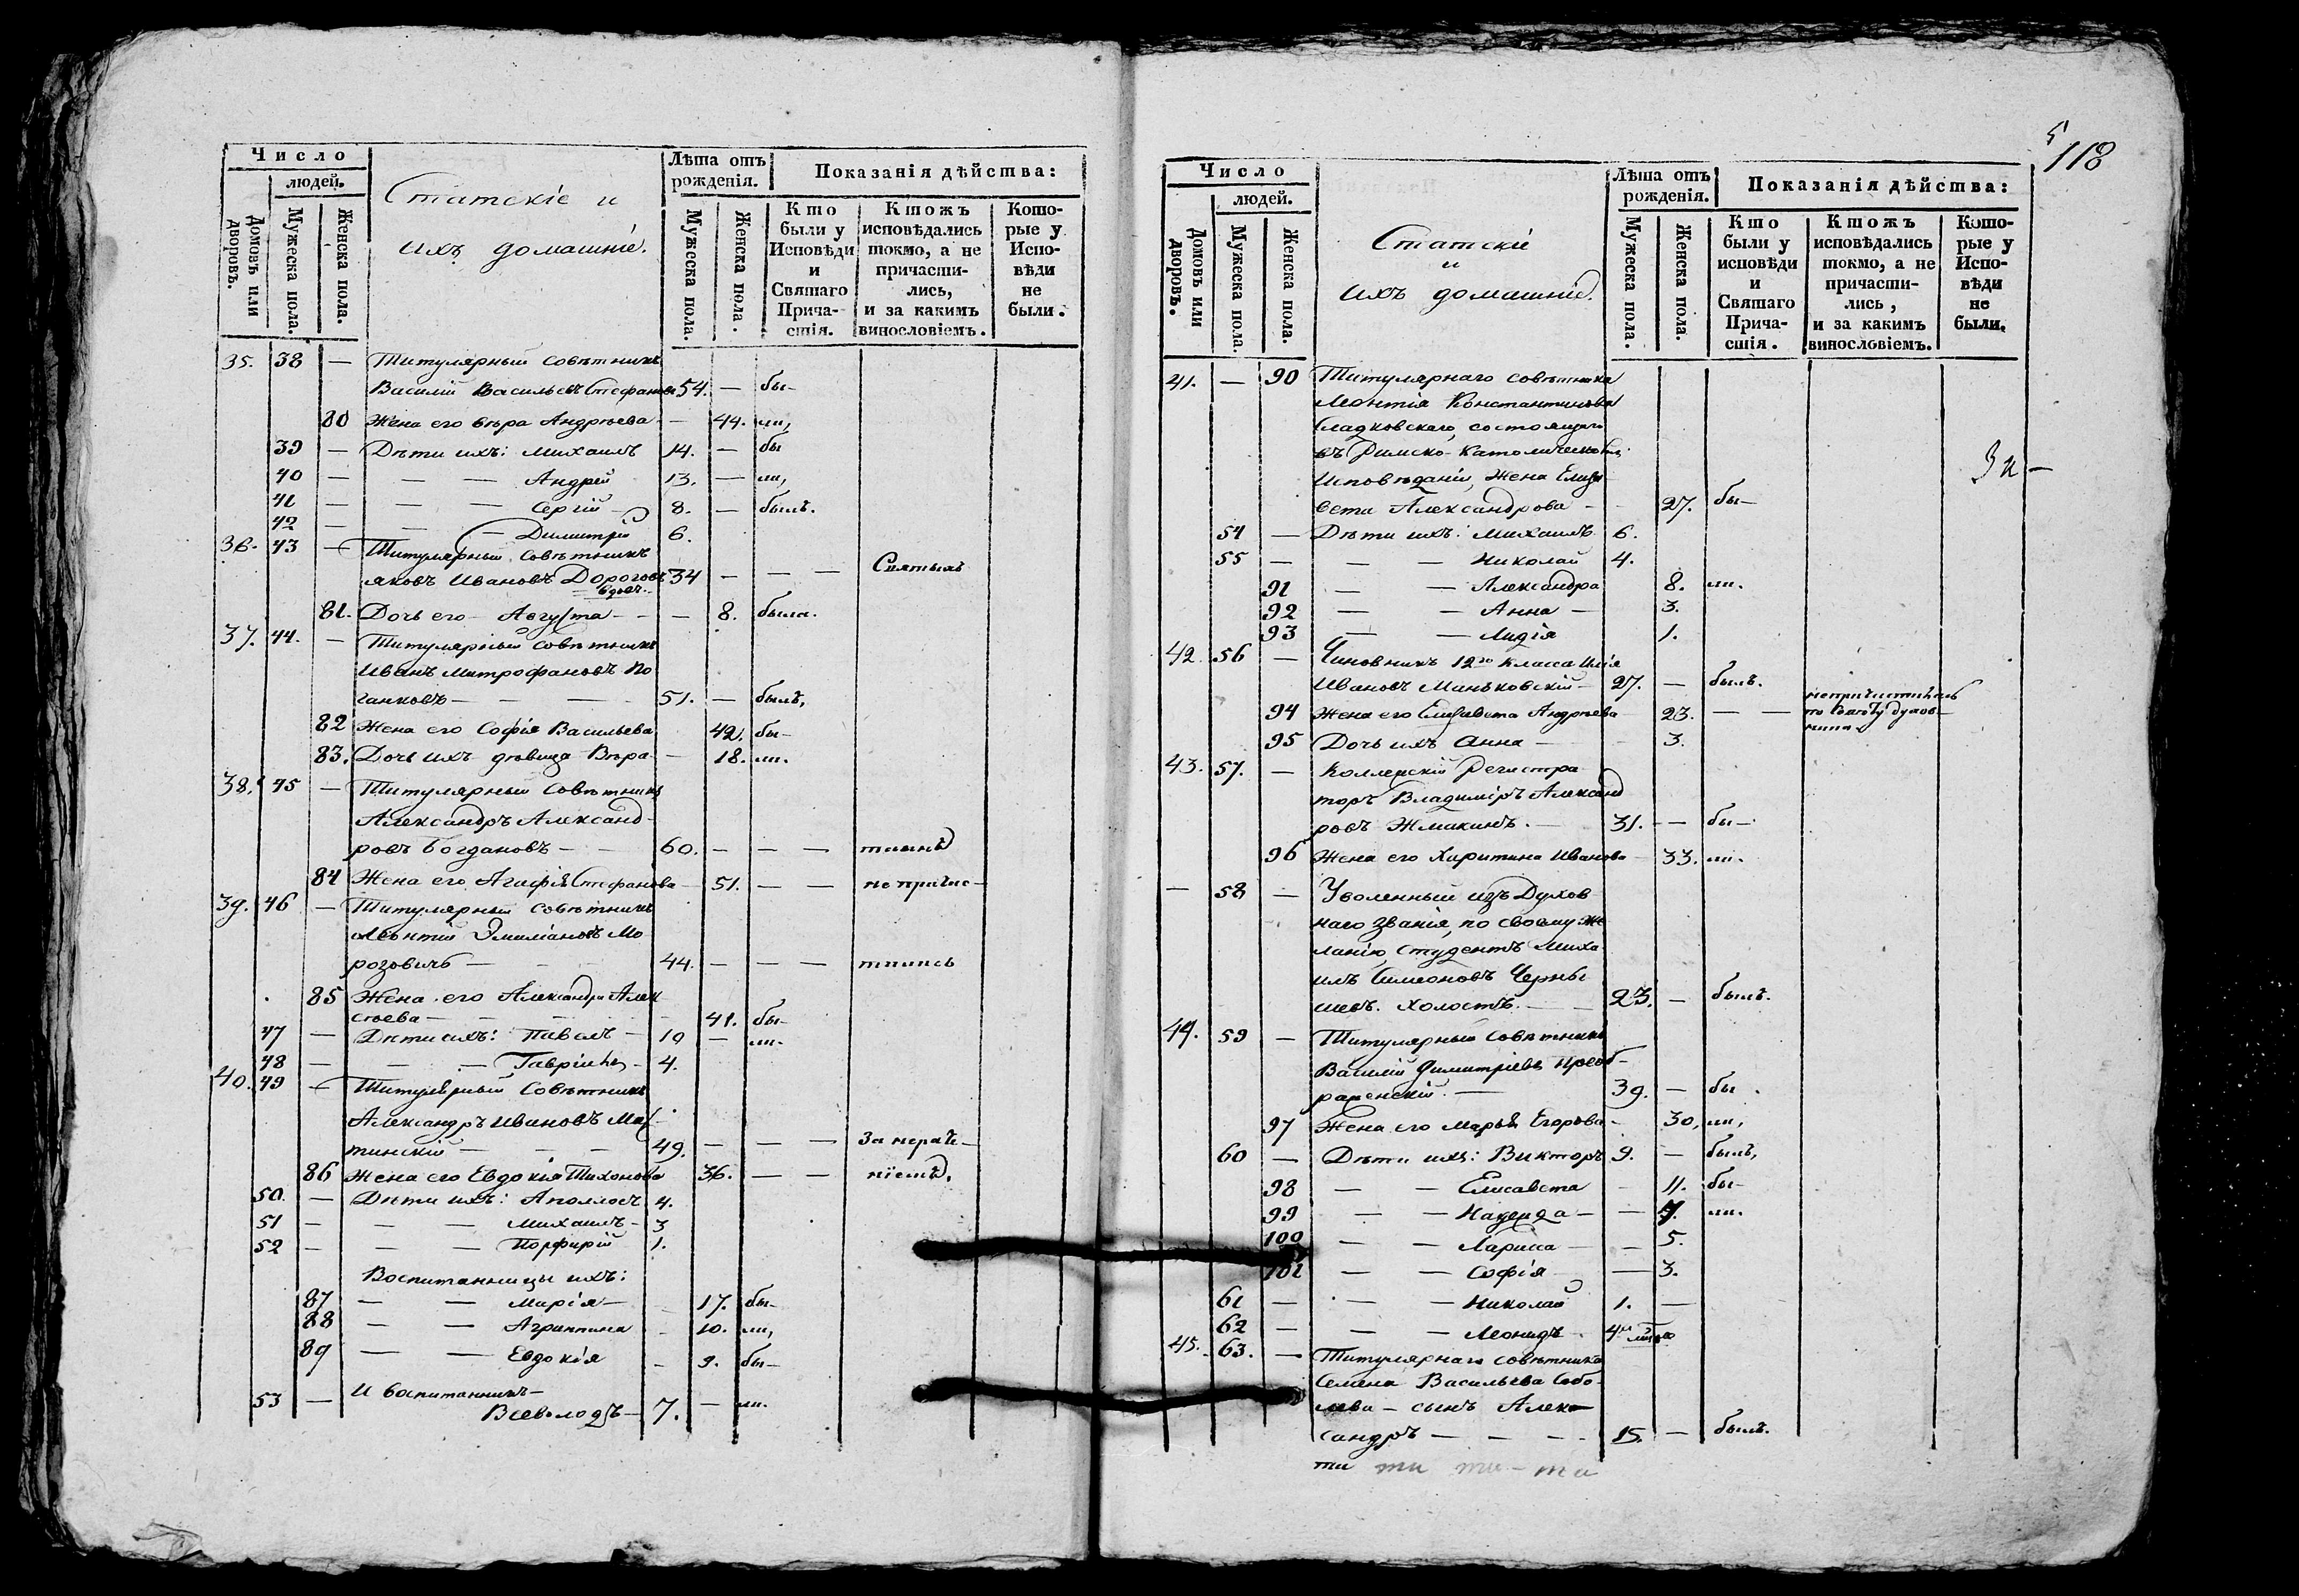 Число
людей.
Домовъ или дворовъ.
Мужеска пола.
Женска пола.
Статскіе и
ихъ домашніе.
Лѣта отъ рожденія.
Мужеска пола.
Женска пола.
Показанія дѣйства:
Кто были у Исповѣди и Святаго Прича-стія.
Ктожъ исповѣдались токмо, а не причасти-лись, и за какимъ винословіемъ.
Кото-рые у Испо-вѣди не были.
35. 38 — Титулярный совѣтникъ
Василій Васильевъ Стефановъ 54. — бы-
80 Жена его Вѣра Андрѣева — 44. ли,
39 — Дѣти ихъ: Михаилъ 14. — бы
40 — — — Андрей 13. — ли,
41 — — — Сергій — 8. — былъ.
42 — — Димитрій 6.
36. 43 — Титулярный совѣтникъ
Яковъ Ивановъ Дороговъ 34 — — — Святыхъ
вдовъ.
81. Дочь его — Августа — — — 8. была.
37. 44. — Титулярный совѣтникъ
Иванъ Митрофановъ По
ганковъ — — — 51. — былъ,
82 Жена его Софія Васильева 42. бы-
83. Дочь ихъ дѣвица Вѣра — 18. ли.
38. 45 — Титулярный Совѣтникъ
Александръ Александ-
ровъ Богдановъ — — 60. — — — таинъ
84 Жена его Агафія Стефанова — 51. — — не причас-
39. 46 — Титулярный совѣтникъ
Леонтій Эмиліановъ Мо
розовичъ — — — 44. — — — тились
85 Жена его Александра Алек
сѣева — — — — 41. бы-
47 — Дѣти ихъ: Павелъ — 10 — ли.
48 — — — Гавріилъ — 4.
40. 49 — Титулярный Совѣтникъ
Александръ Ивановъ Мас-
тинскій — — — 49. — — — За нераде-
86 Жена его Евдокія Тихонова 36. — — ніемъ.
50. — Дѣти ихъ: Аполлосъ 4.
51 — — — Михаилъ — 3
52 — — — Порфирій 1.
Воспитанницы ихъ:
87 — — Марія — — 17. бы-
88 — — Агриппина — 10. ли,
89 — — Евдокія — 9. бы-
53 — И воспитанникъ —
Всеволодъ — 7. — ли.
118
Число
людей.
Домовъ или дворовъ.
Мужеска пола.
Женска пола.
Статскіе
и
ихъ домашніе.
Лѣта отъ рожденія.
Мужеска пола.
Женска пола.
Показанія дѣйства:
Кто были у исповѣди и Святаго Прича-стія.
Ктожъ исповѣдались токмо, а не причасти-лись, и за какимъ винословіемъ.
Кото-рые у Испо-вѣди не были.
41. — 90 Титулярнаго совѣтника
Леонтія Константинова
Сладковскаго, состоящаго
въ Римско-Католическомъ
Исповѣданіи, Жена Елиса
вета Александрова — — 27. бы-
54 — Дѣти ихъ: Михаилъ 6.
55 — — — Николай 4.
91 — — Александра 8. ли.
92 — — Анна — 3.
93 — — Лидія 1.
42. 56 — Чиновникъ 12го класса Илія
Ивановъ Маньковскій — 27. — былъ.
94 Жена его Елисавета Андрѣева 23. — — не причастилась
по совѣту духов-
ника.
95 Дочь ихъ Анна — 3.
43. 57. — Коллежскій Регистра
торъ Владиміръ Александ
ровъ Жмакинъ. — 31. — бы-
96 Жена его Харитина Иванова — 33. ли.
— 58 — Уволенный изъ Духов
наго званія, по своему же
ланію, Студентъ Миха
илъ Симеоновъ Черны
шевъ. Холостъ. — — 23. — былъ.
44. 59 — Титулярный Совѣтникъ
Василій Димитріевъ Преоб-
раженскій. — 39. — бы
97 Жена его Марья Егорова — 30, ли,
60 — Дѣти ихъ: Викторъ 9. — былъ,
98 — — Елисавета — 11. бы-
99 — — Надежда — — 7. ли.
100 — — Лариса — — 5.
101 — — Софія — 3.
61 — — — Николай 1. —
62 — — — Леонидъ
45. 63. — Титулярнаго совѣтника
Семена Васильева Собо-
лева — сынъ Алек-
сандръ — — — 15. — былъ.
ти ти ти-ти